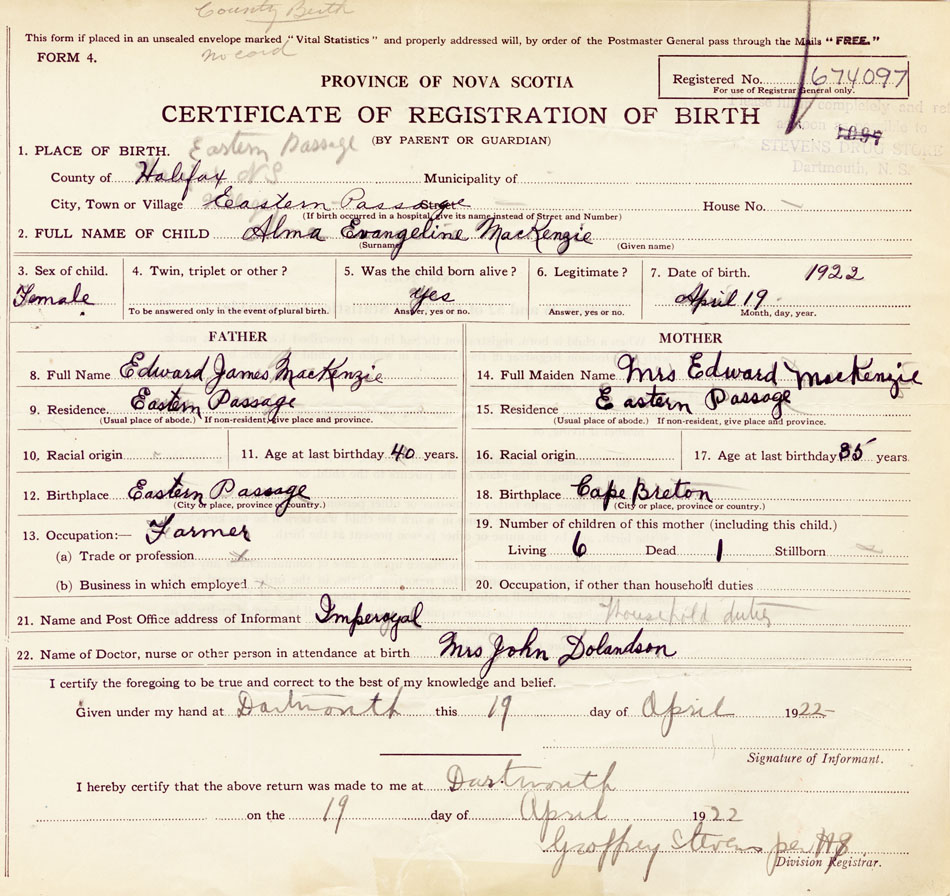 County Birth
This form if placed in an unsealed envelope marked "Vital Statistics" and properly addressed will, by order of the Postmaster General pass through the Mails "FREE."
FORM 4. no card
PROVINCE OF NOVA SCOTIA
Registered No. 674097
For use of Registrar General only.
CERTIFICATE OF REGISTRATION OF BIRTH
(BY PARENT OR GUARDIAN)
STEVENS DRUG STORE
Dartmouth, N. S.
1. PLACE OF BIRTH. Eastern Passage
County of Halifax NS Municipality of
City, Town or Village Eastern Passage Street House No.
(If birth occurred in a hospital, give its name instead of Street and Number)
2. FULL NAME OF CHILD Alma Evangeline MacKenzie
(Surname) (Given name)
3. Sex of child. 4. Twin, triplet or other? 5. Was the child born alive? 6. Legitimate? 7. Date of birth. 1922
Female yes April 19
To be answered only in the event of plural birth. Answer, yes or no. Answer, yes or no. Month, day, year.
FATHER MOTHER
8. Full Name Edward James MacKenzie 14. Full Maiden Name Mrs Edward MacKenzie
9. Residence Eastern Passage 15. Residence Eastern Passage
(Usual place of abode.) If non-resident, give place and province. (Usual place of abode.) If non-resident, give place and province.
10. Racial origin 11. Age at last birthday 40 years. 16. Racial origin 17. Age at last birthday 35 years
12. Birthplace Eastern Passage 18. Birthplace Cape Breton
(City or place, province or country.) (City or place, province or country.)
13. Occupation:— Farmer 19. Number of children of this mother (including this child.)
(a) Trade or profession Living 6 Dead 1 Stillborn
(b) Business in which employed 20. Occupation, if other than household duties
21. Name and Post Office address of Informant Imperoyal Household duties
22. Name of Doctor, nurse or other person in attendance at birth Mrs John Dolandson
I certify the foregoing to be true and correct to the best of my knowledge and belief.
Given under my hand at Dartmouth this 19 day of April 1922
Signature of Informant.
I hereby certify that the above return was made to me at Dartmouth
on the 19 day of April 1922
Groffrey Stevens per
Division Registrar.